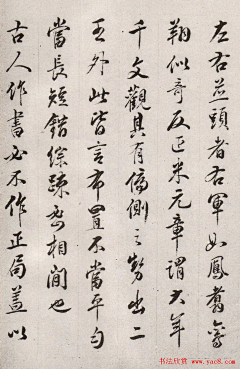 左右並頭者右軍如鳳翥鸞
翔似奇反正米元章謂大年
千文觀其有偏側之勢出二
王外此皆言布置不當平勻
當長短錯綜疏密相間也
古人作書必不作正局蓋以
书法欣赏 www.yac8.com